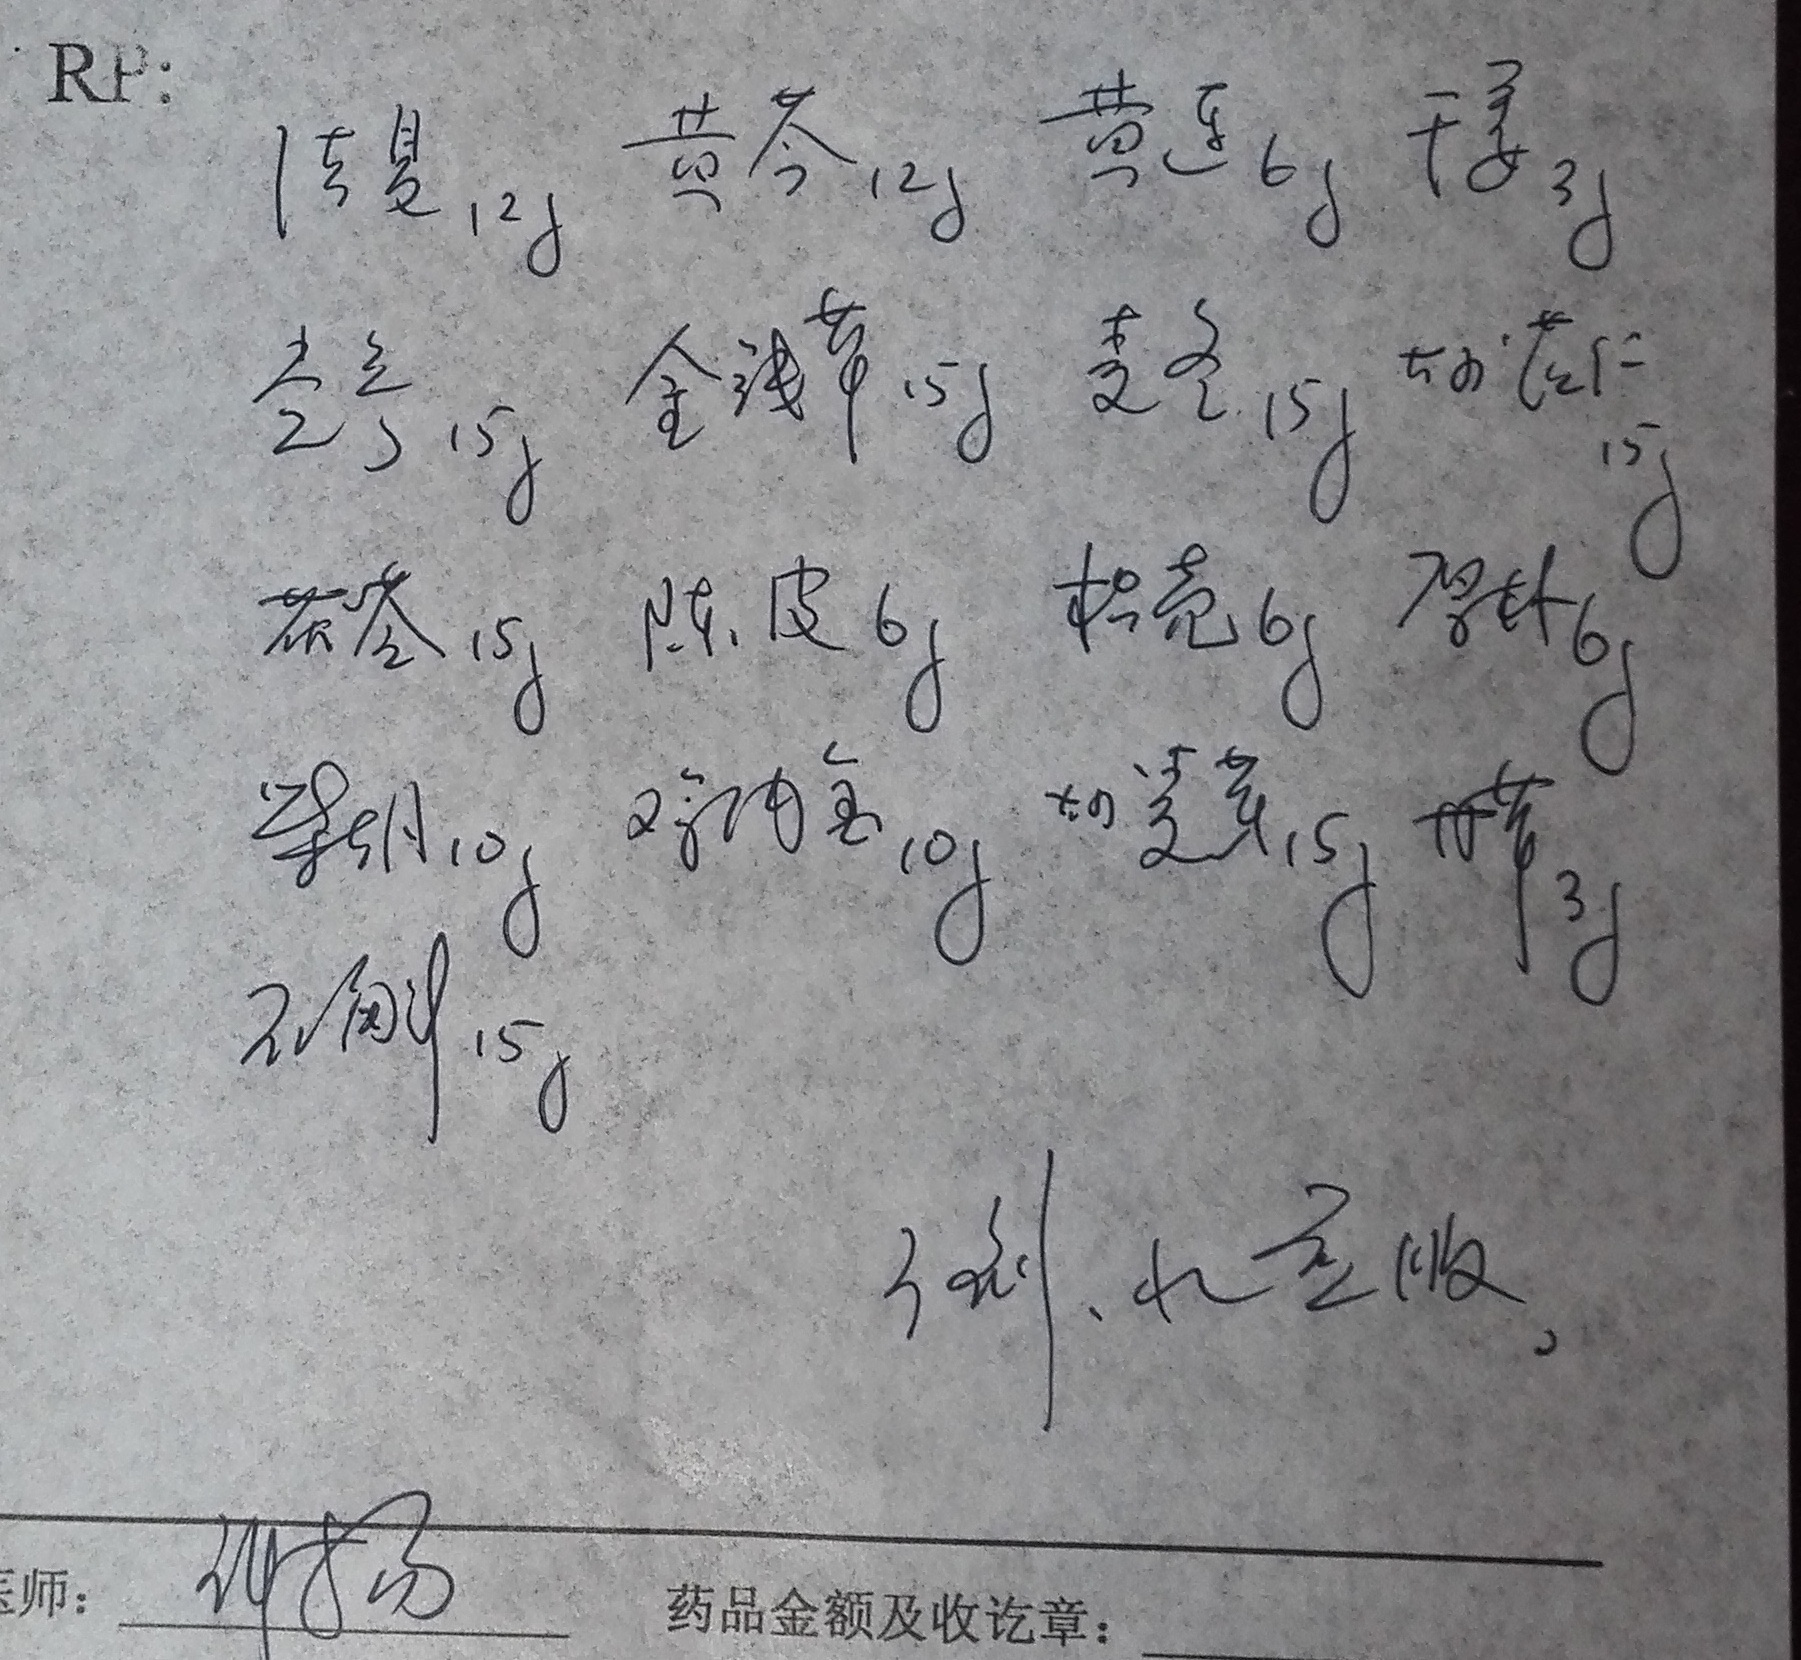 RP:
法夏12g 黄芩12g 黄连6g 干姜3g
15g 金钱草15g 麦冬15g 炒苡仁15g
茯苓15g 陈皮6g 枳壳6g 6g
柴胡10g 鸡内金10g 炒麦芽15g 甘草3g
石斛15g
3剂、水煎服
医师:
药品金额及收讫章: